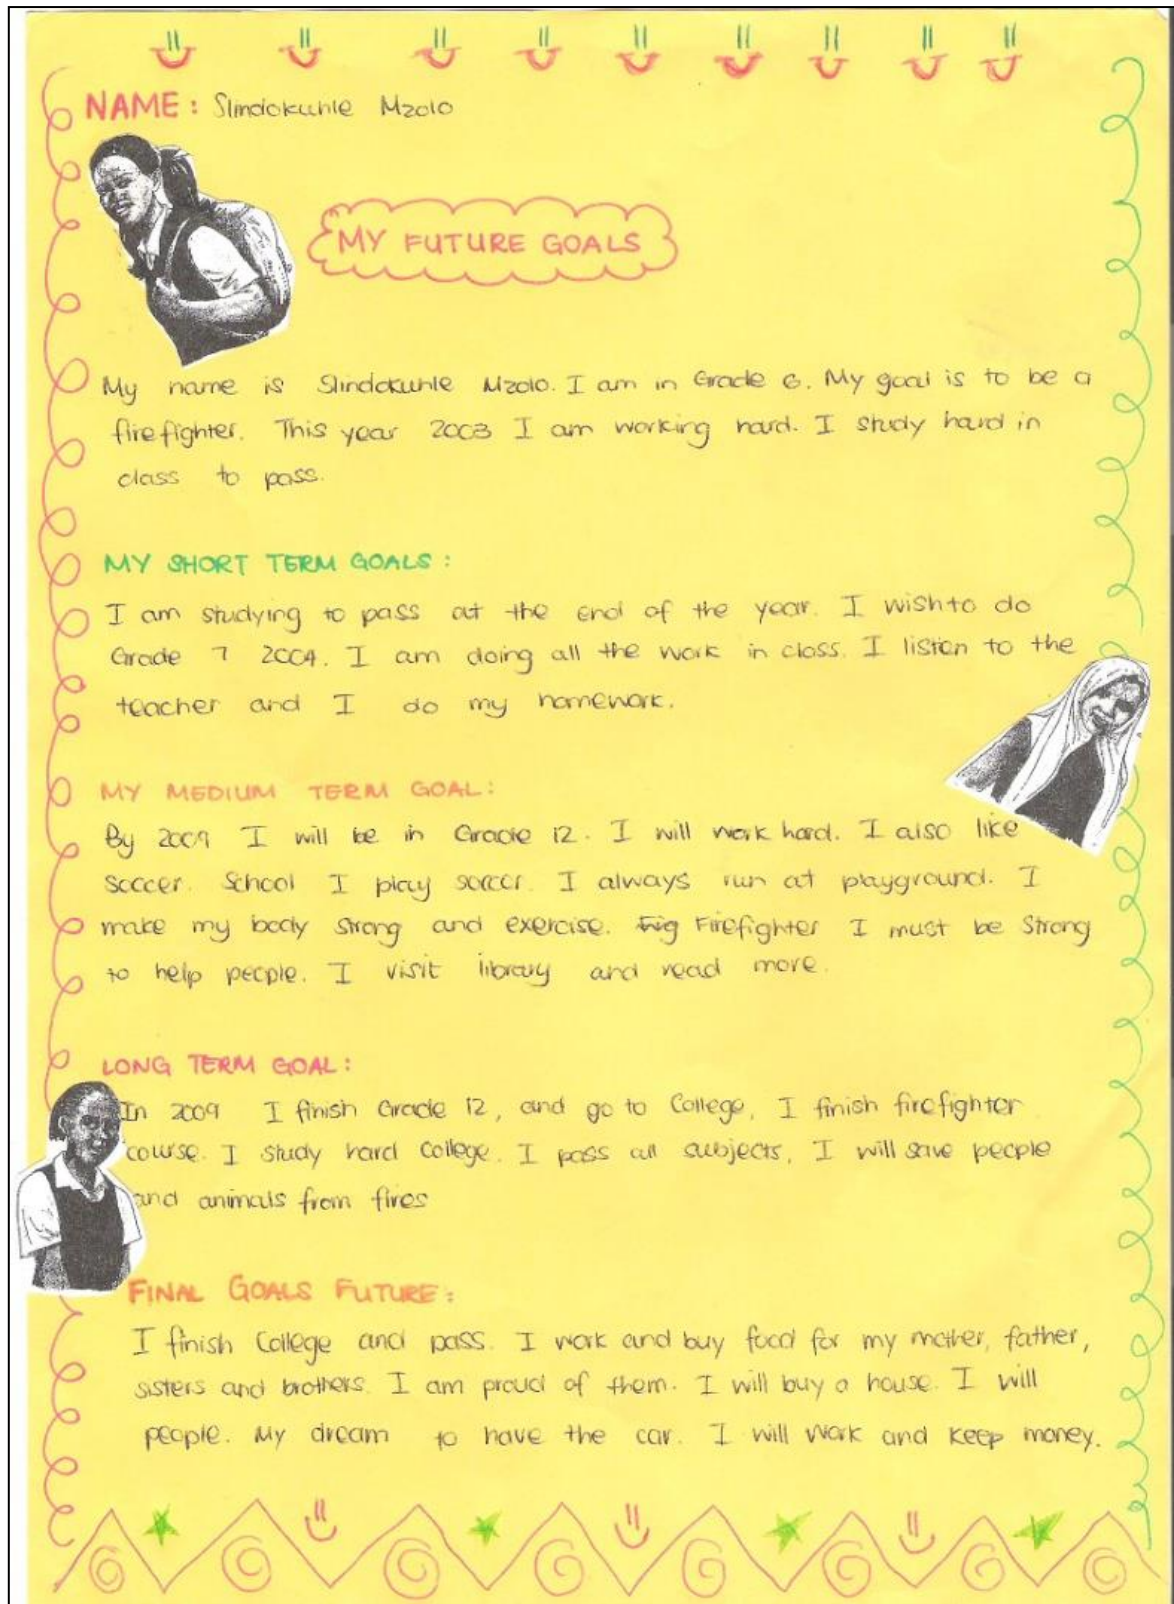 NAME: Slindokuhle Mzolo
MY FUTURE GOALS
My name is Slindokuhle Mzolo. I am in Grade 6. My goal is to be a
firefighter. This year 2003 I am working hard. I study hard in
class to pass.
MY SHORT TERM GOALS:
I am studying to pass at the end of the year. I wish to do
Grade 7 2004. I am doing all the work in class. I listen to the
teacher and I do my homework.
MY MEDIUM TERM GOAL:
By 2009 I will be in Grade 12. I will work hard. I also like
soccer. School I play soccer. I always run at playground. I
make my body strong and exercise. Firefighter I must be strong
to help people. I visit library and read more.
LONG TERM GOAL:
In 2009 I finish Grade 12, and go to College, I finish firefighter
course. I study hard college. I pass all subjects, I will save people
and animals from fires
FINAL GOALS FUTURE:
I finish College and pass. I work and buy food for my mother, father,
sisters and brothers. I am proud of them. I will buy a house. I will
people. My dream to have the car. I will work and keep money.